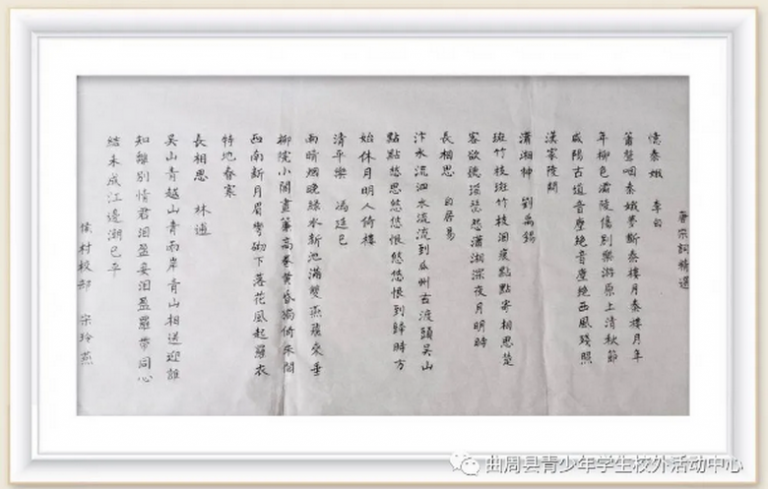 唐宋詞精選
憶秦娥 李白
簫聲咽秦娥夢斷秦樓月秦樓月年
年柳色灞陵傷別樂游原上清秋節
咸陽古道音塵絕音塵絕西風殘照
漢家陵闕
瀟湘神 劉禹錫
斑竹枝斑竹枝泪痕點點寄相思楚
客欲聽瑤瑟怨瀟湘深夜月明時
長相思 白居易
汴水流泗水流流到瓜州古渡頭吳山
點點愁思悠悠恨悠悠恨到歸時方
始休月明人倚樓
清平樂 馮延巳
雨晴烟晚綠水新池滿雙燕飛來垂
柳院小閣畫簾高捲黄昏獨倚朱闌
西南新月眉彎砌下落花風起羅衣
特地春寒
長相思 林逋
吳山青越山青兩岸青山相送迎誰
知離別情君泪盈妾泪盈羅帶同心
結未成江邊潮已平
村校部 宗玲燕
曲周县青少年学生校外活动中心